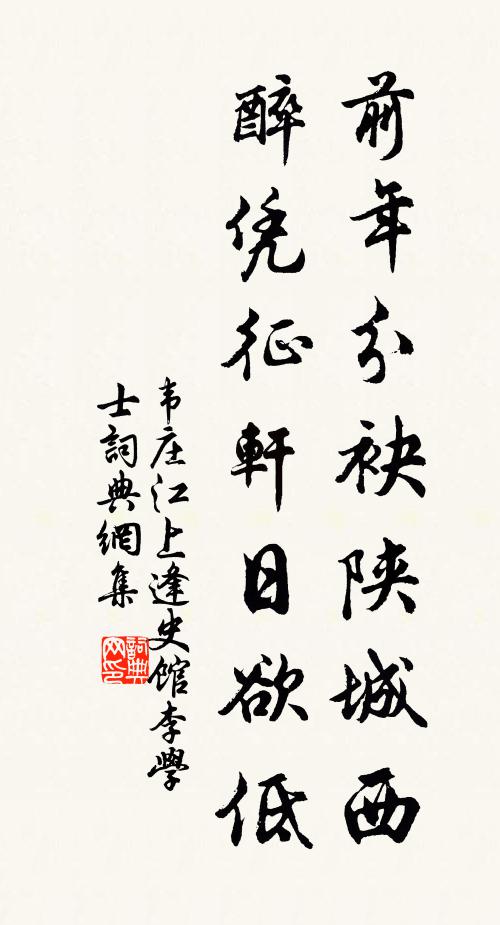 前年分袂陕城西
醉凭征軒日欲低
韦庄江上逢史馆李學
士詞典網集
詞典
网印